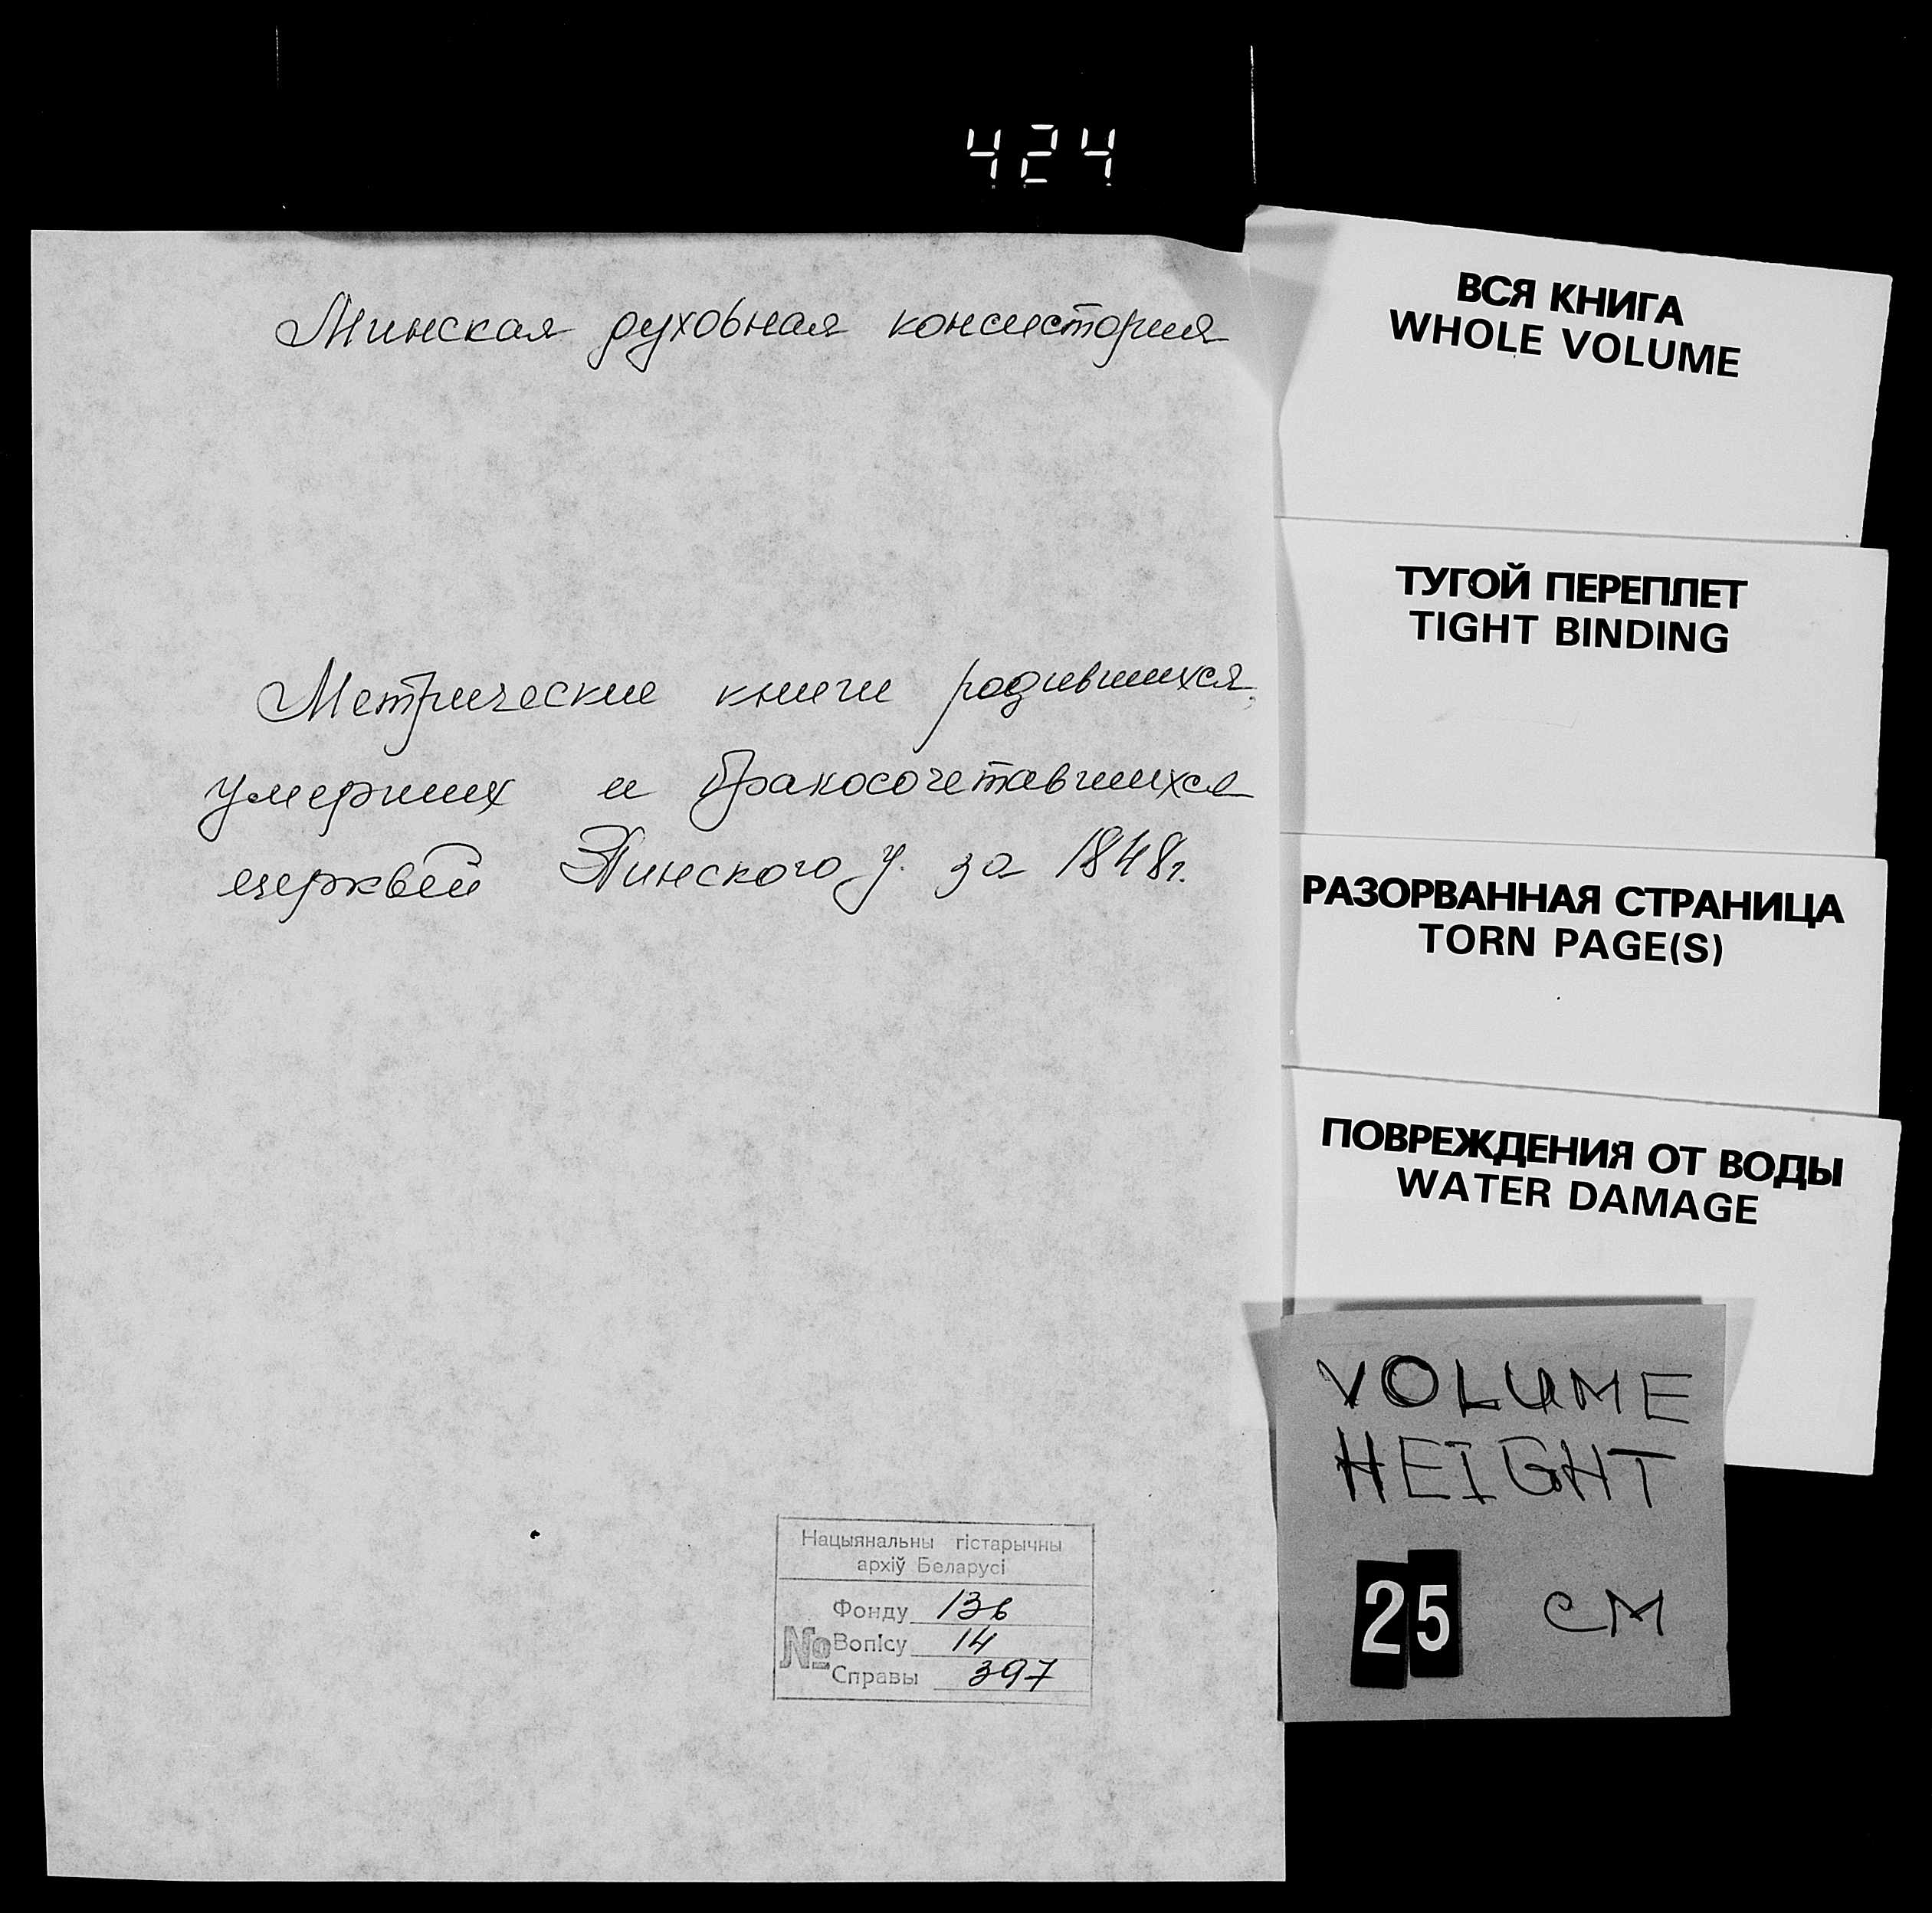 424
Минская духовная консистория
Метрические книги родившихся,
умерших и бракосочетавшихся
церквей Пинского у. за 1848г.
Нацыянальны гістарычны
архіў Беларусі
Фонду 136
№ Вопісу 14
Справы 397
ВСЯ КНИГА
WHOLE VOLUME
ТУГОЙ ПЕРЕПЛЕТ
TIGHT BINDING
РАЗОРВАННАЯ СТРАНИЦА
TORN PAGE(S)
ПОВРЕЖДЕНИЯ ОТ ВОДЫ
WATER DAMAGE
VOLUME
HEIGHT
25 CM